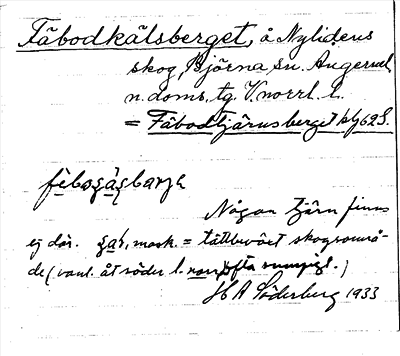 Fäbodkälsberget, å Nylidens
skog, Björna sn. Ångerml.
n. doms. tg. V.norrl. l.
= Fäbodtjärnsberget bl. 62 S.
Någon tjärn finns
ej där. mask. = tättbevuxet skogsområ-
de (vanl. åt söder l. ofta sumpigt.)
H A Söderberg 1933